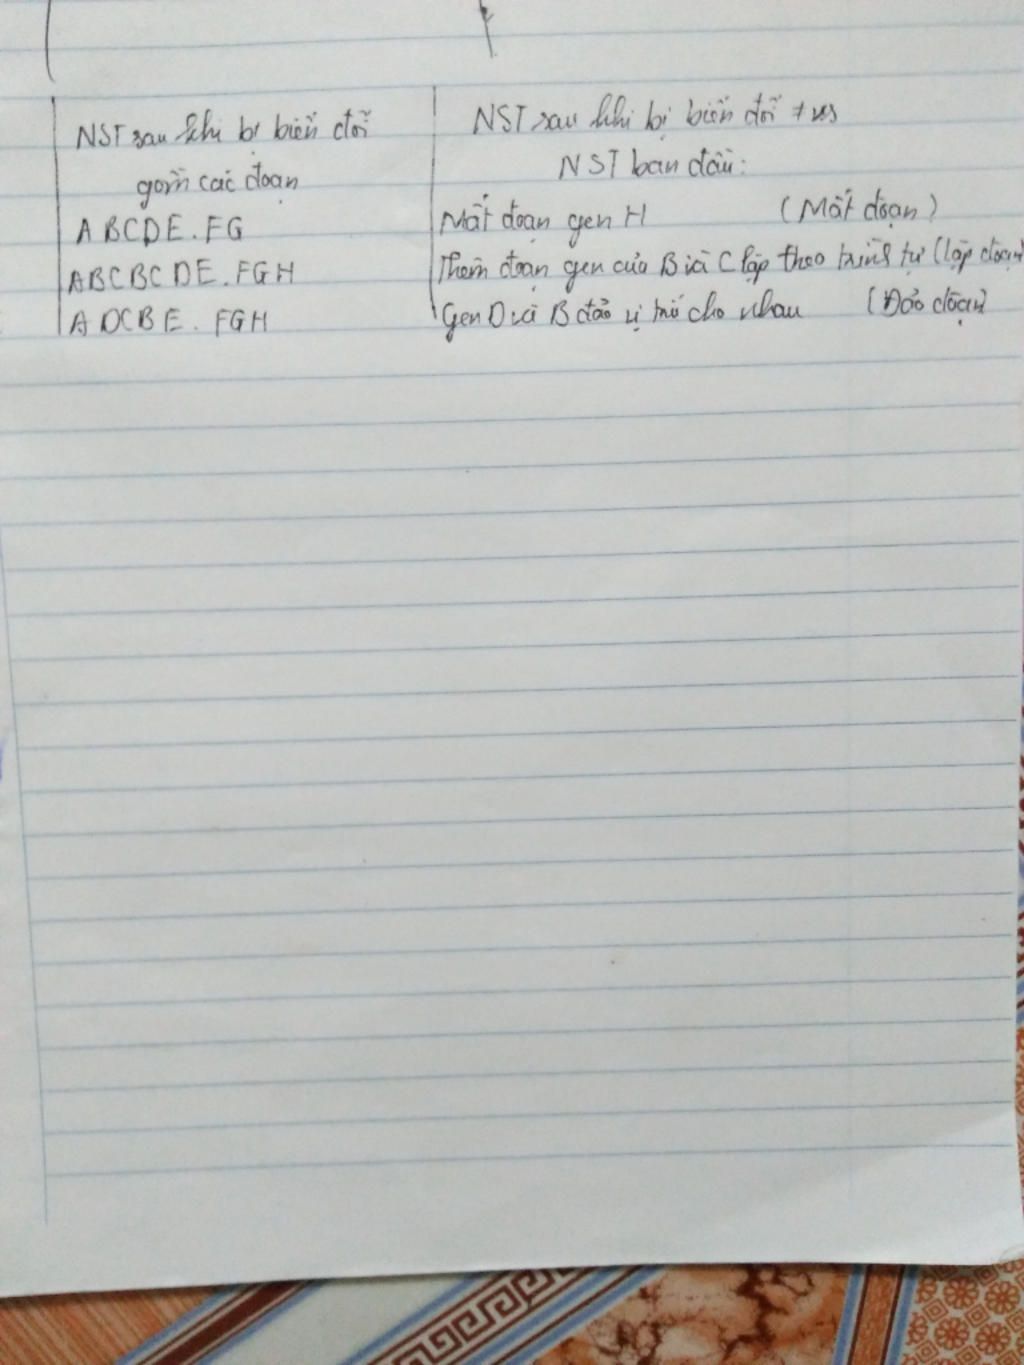 NST sau khi bị biến đổi
gồm các đoạn
NST sau khi bị biến đổi + vs
NST ban đầu:
ABCDE.FG
Mất đoạn gen H (Mất đoạn)
ABCBCDE.FGH
Thêm đoạn gen của B và C lặp theo trình tự (lặp đoạn)
ADCBE.FGH
Gen D và B đảo vị trí cho nhau (Đảo đoạn)